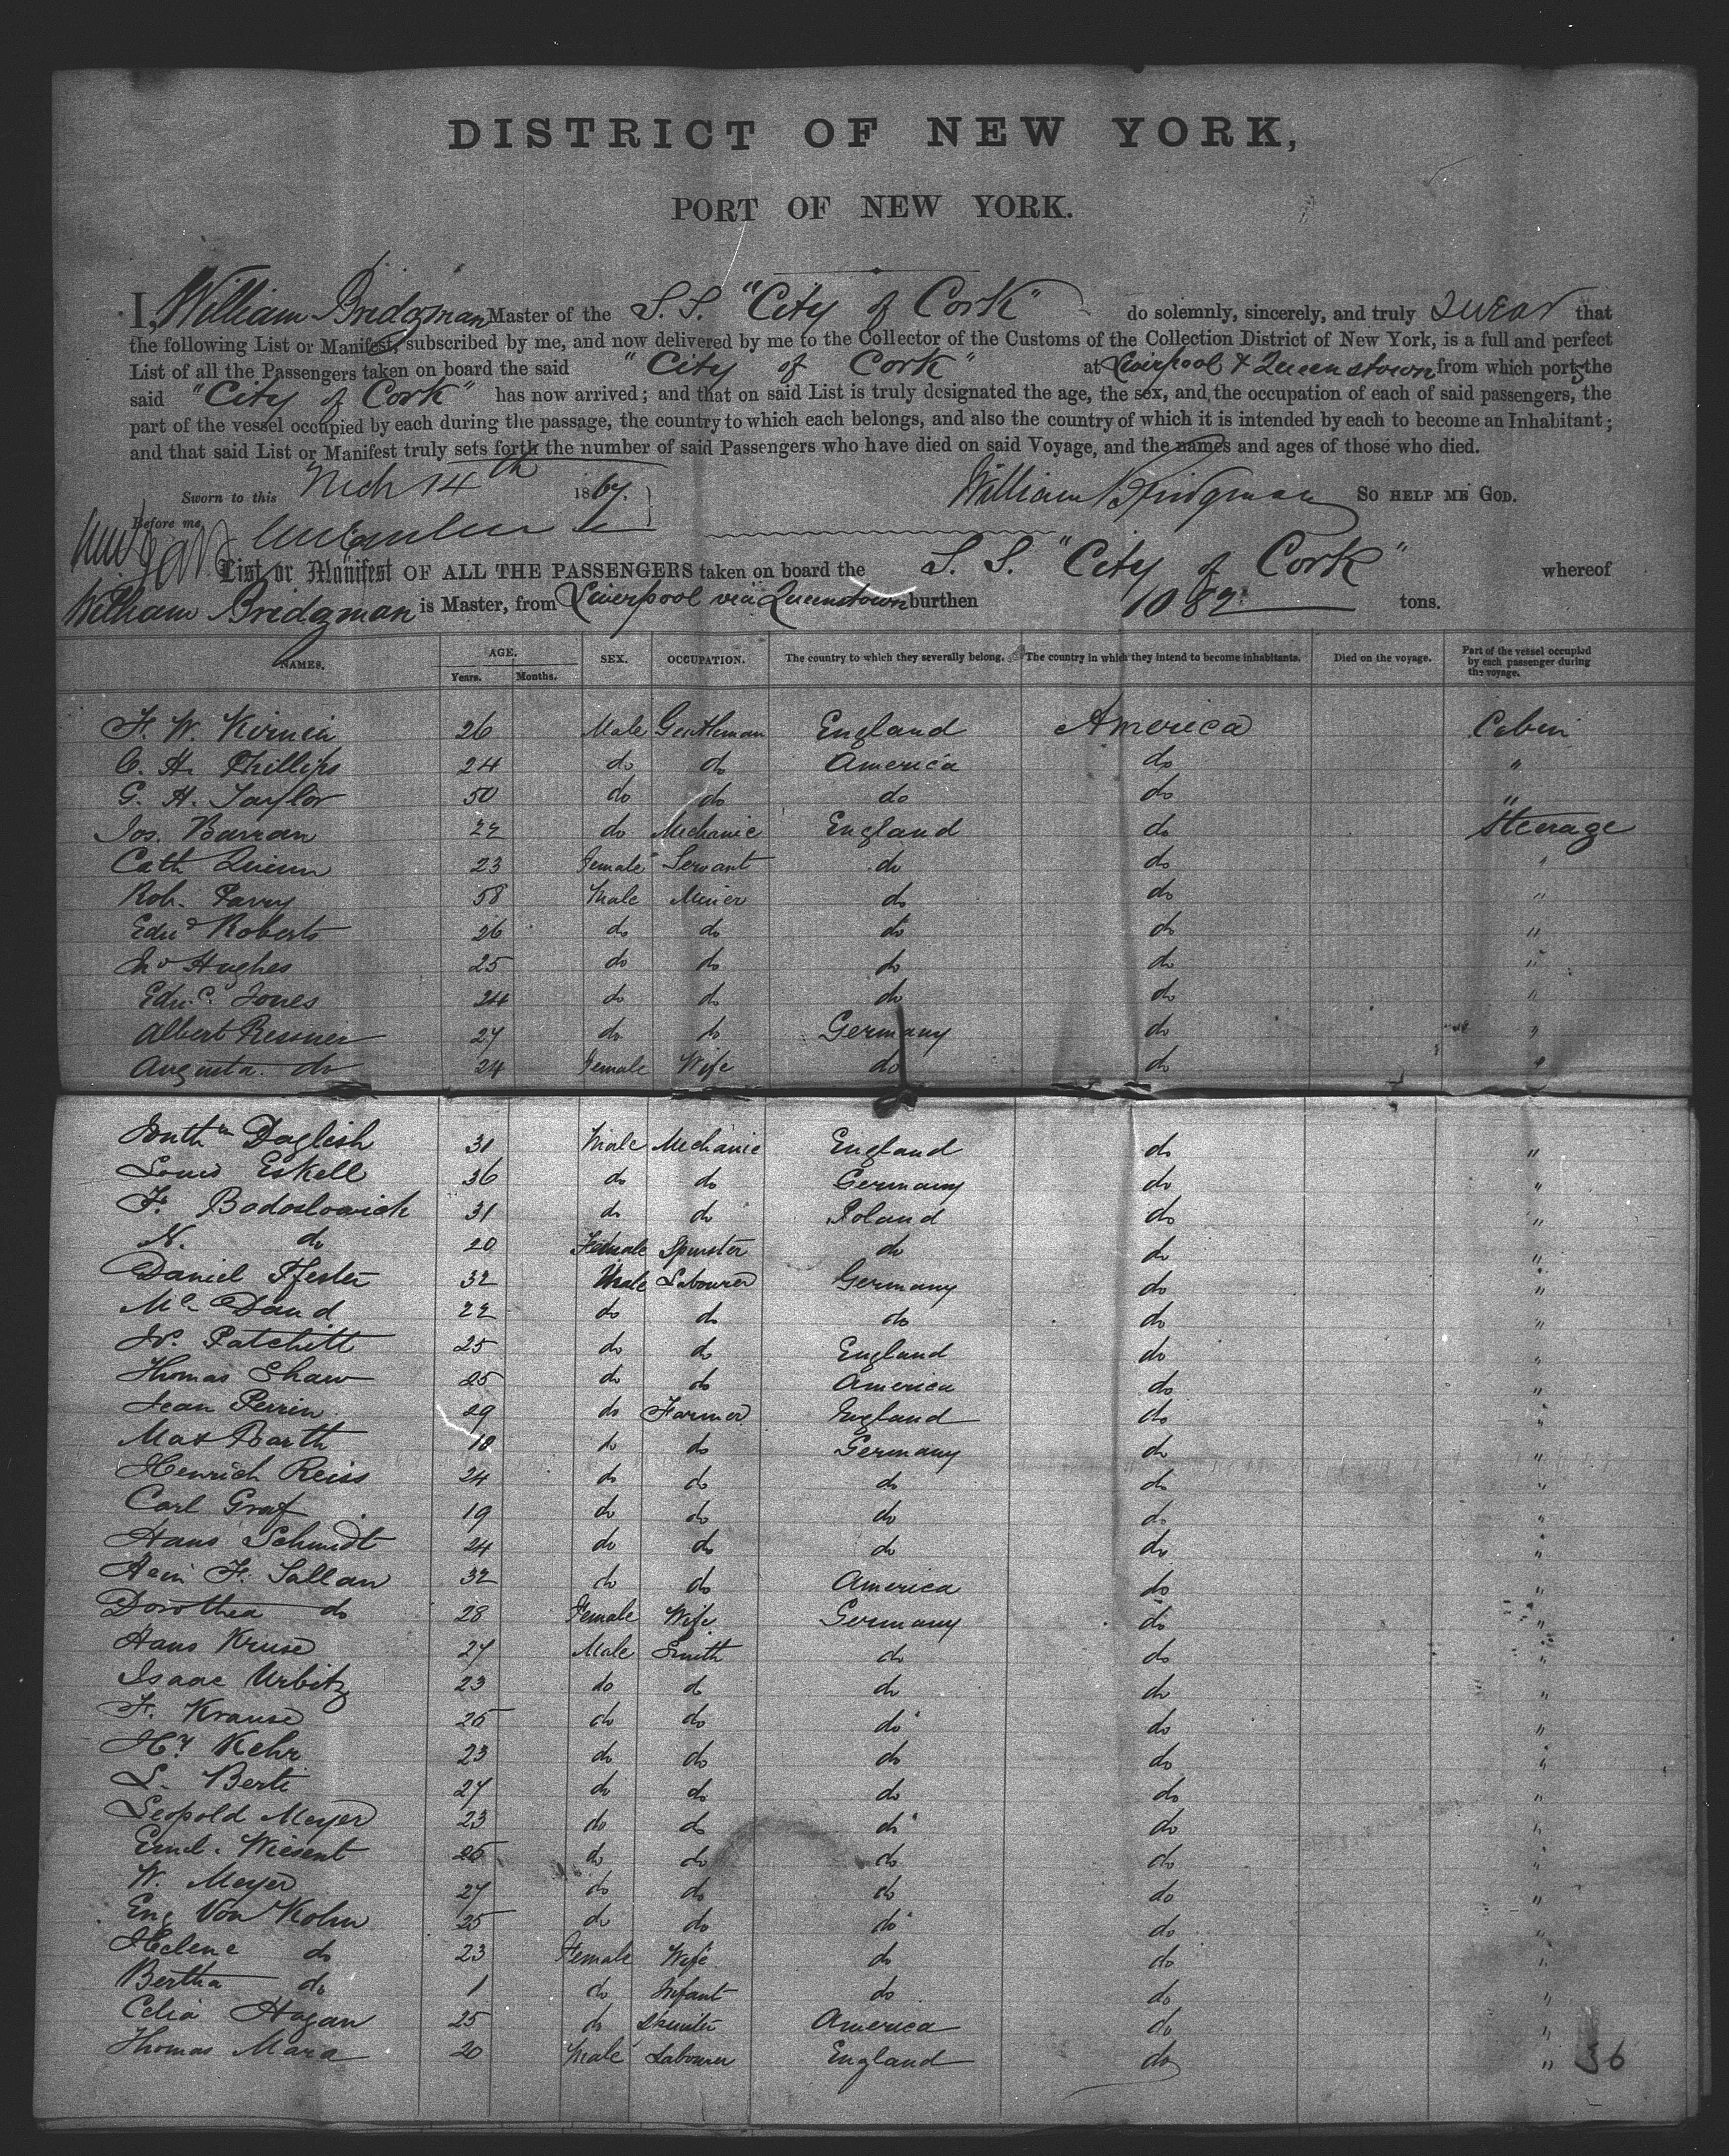 DISTRICT OF NEW YORK,
PORT OF NEW YORK.
I, William Bridgman Master of the S.S. "City of Cork" do solemnly, sincerely, and truly swear that
the following List or Manifest, subscribed by me, and now delivered by me to the Collector of the Customs of the Collection District of New York, is a full and perfect
List of all the Passengers taken on board the said "City of Cork" at Liverpool & Queenstown from which ports the
said "City of Cork" has now arrived; and that on said List is truly designated the age, the sex, and the occupation of each of said passengers, the
part of the vessel occupied by each during the passage, the country to which each belongs, and also the country of which it is intended by each to become an Inhabitant;
and that said List or Manifest truly sets forth the number of said Passengers who have died on said Voyage, and the names and ages of those who died.
Sworn to this Mch 14th 1867. William Bridgman SO HELP ME GOD.
Before me,
List or Manifest OF ALL THE PASSENGERS taken on board the S.S. "City of Cork" whereof
William Bridgman is Master, from Liverpool via Queenstown burthen 1082 tons.
NAMES. AGE. Years. Months. SEX. OCCUPATION. The country to which they severally belong. The country in which they intend to become inhabitants. Died on the voyage. Part of the vessel occupied by each passenger during the voyage.
F. W. 26 Male Gentleman England America Cabin
C. H. Phillips 24 do do America do "
G. H. Taylor 50 do do do do "
Jos. Barran 22 do Mechanic England do Steerage
Cath Quinn 23 Female Servant do do "
Rob. Parry 58 Male Miner do do "
Edwd Roberts 26 do do do do "
Jno Hughes 25 do do do do "
Edwd Jones 24 do do do do "
Albert Ressner 27 do do Germany do "
Augusta do 24 Female Wife do do "
Jonthn Daglish 31 Male Mechanic England do "
Louis Eskell 36 do do Germany do "
F. Bodoslowich 31 do do Poland do "
N. do 20 Female Spinster do do "
Daniel Pfester 32 Male Labourer Germany do "
Mc Daud 22 do do do do "
W. Patchitt 25 do do England do "
Thomas Shaw 25 do do America do "
Jean Perrin 29 do Farmer England do "
Max Barth 18 do do Germany do "
Henrich Reiss 24 do do do do "
Carl Graf 19 do do do do "
Hans Schmidt 24 do do do do "
Hein F. Tallan 32 do do America do "
Dorothea do 28 Female Wife Germany do "
Hans Kruse 27 Male Smith do do "
Isaac Urbitz 23 do do do do "
F. Krause 25 do do do do "
Hy Kehr 23 do do do do "
L. Berti 27 do do do do "
Leopold Meyer 23 do do do do "
Emil. Wiesent 25 do do do do "
W. Meyer 27 do do do do "
Eng Von Kohn 25 do do do do "
Helene do 23 Female Wife do do "
Bertha do 1 do Infant do do "
Celia Hagan 25 do Spinster America do "
Thomas Mara 20 Male Labourer England do " 36